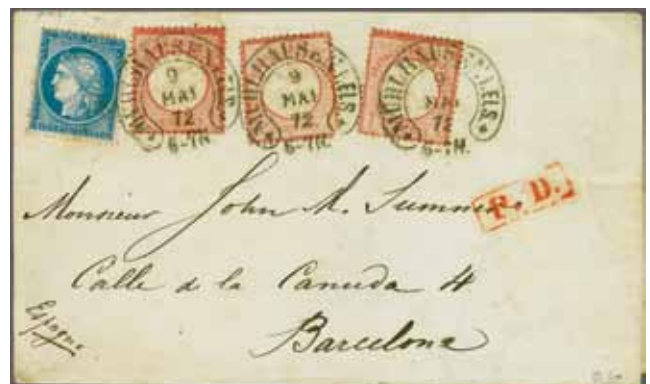 MUELHAUSEN I. ELS.
9
MAI
72
6-7N.
MUELHAUSEN I. ELS.
9
MAI
72
6-7N.
MUELHAUSEN I. ELS.
9
MAI
72
6-7N.
P. D.
Monsieur John M. Summers
Calle de la Canuda 4
Barcelona
Espagne